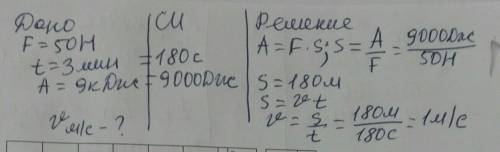 Дано
F = 50Н
t = 3 мин
A = 9кДж
v м/с - ?
СИ
= 180 с
= 9000Дж
Решение
A = F · S; S = A/F = 9000Дж/50Н
S = 180м
S = v t
v = S/t = 180м/180с = 1м/с